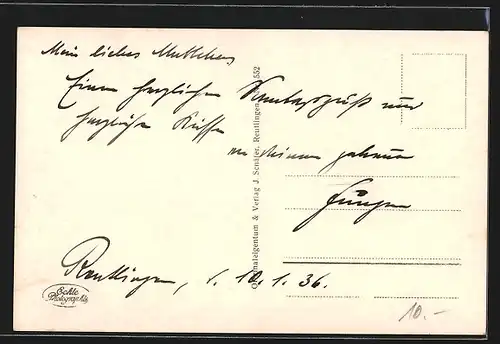 Mein liebes Muttchen,
Einen herzlichen Sonntagsgruß und
herzliche Küsse
von Deinem
Jungen
Reutlingen, d. 10.1.36.
Originaleigentum & Verlag J. Schäfer, Reutlingen 552
Echte
Photographie
10.-